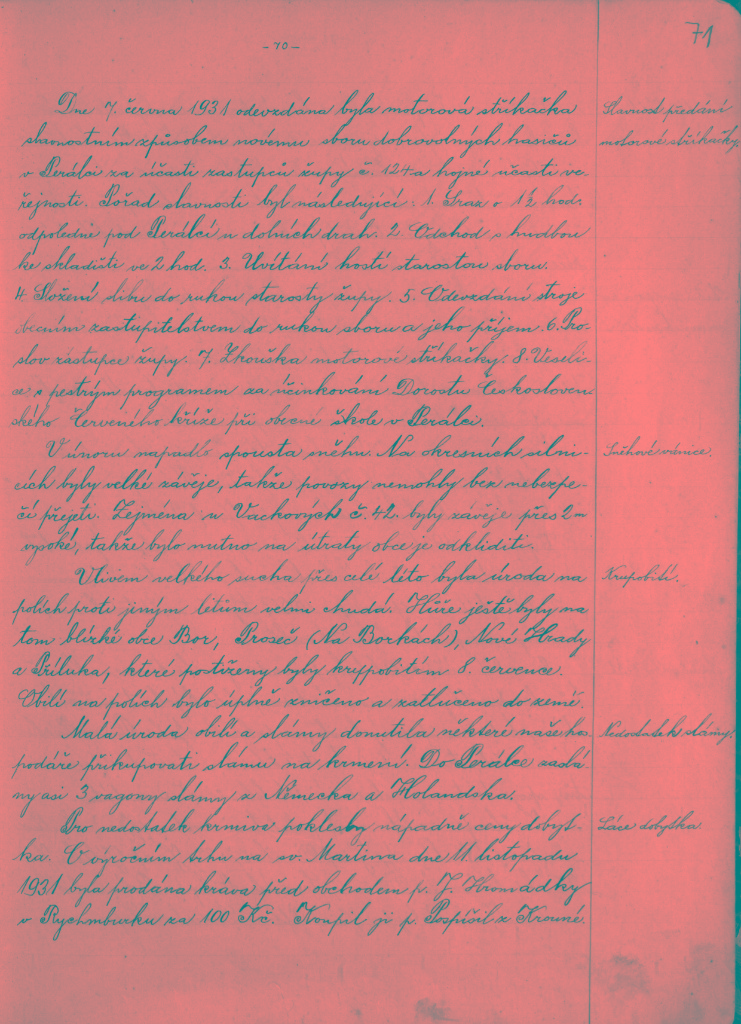 71
- 70 -
Dne 7. června 1931 odevzdána byla motorová stříkačka
Slavnost předání
slavnostním způsobem novému sboru dobrovolných hasičů
motorové stříkačky.
v Perálci za účasti zastupců župy č. 124 a hojné účasti ve-
řejnosti. Pořad slavnosti byl následující: 1. Sraz o 1½ hod.
odpoledne pod Perálcí u dolních drah. 2. Odchod s hudbou
ke skladišti ve 2 hod. 3. Uvítání hostí starostou sboru.
4. Složení slibu do rukou starosty župy. 5. Odevzdání stroje
obecním zastupitelstvem do rukou sboru a jeho příjem. 6. Pro-
slov zástupce župy. 7. Zkouška motorové stříkačky. 8. Veseli-
ce s pestrým programem za účinkování Dorostu Českosloven-
ského Červeného kříže při obecné škole v Perálci.
V únoru napadlo spousta sněhu. Na okresních silni-
Sněhové vánice.
cích byly velké závěje, takže povozy nemohly bez nebezpe-
čí přejeti. Zejména u Vackových č. 42. byly závěje přes 2 m
vysoké, takže bylo nutno na útraty obce je odkliditi.
Vlivem velkého sucha přes celé léto byla úroda na
Krupobití.
polích proti jiným létům velmi chudá. Hůře ještě byly na
tom blízké obce Bor, Proseč (Na Borkách), Nové Hrady
a Příluka, které postiženy byly krupobitím 8. července.
Obilí na polích bylo úplně zničeno a zatlučeno do země.
Malá úroda obilí a slámy donutila některé naše hos
Nedostatek slámy.
podáře přikupovati slámu na krmení. Do Perálce zaslá-
ny asi 3 vagony slámy z Německa a Holandska.
Pro nedostatek krmiva poklesly nápadně ceny dobyt-
Láce dobytka.
ka. O výročním trhu na sv. Martina dne 11. listopadu
1931 byla prodána kráva před obchodem p. J. Hromádky
v Rychmburku za 100 Kč. Koupil ji p. Pospíšil z Krouné.